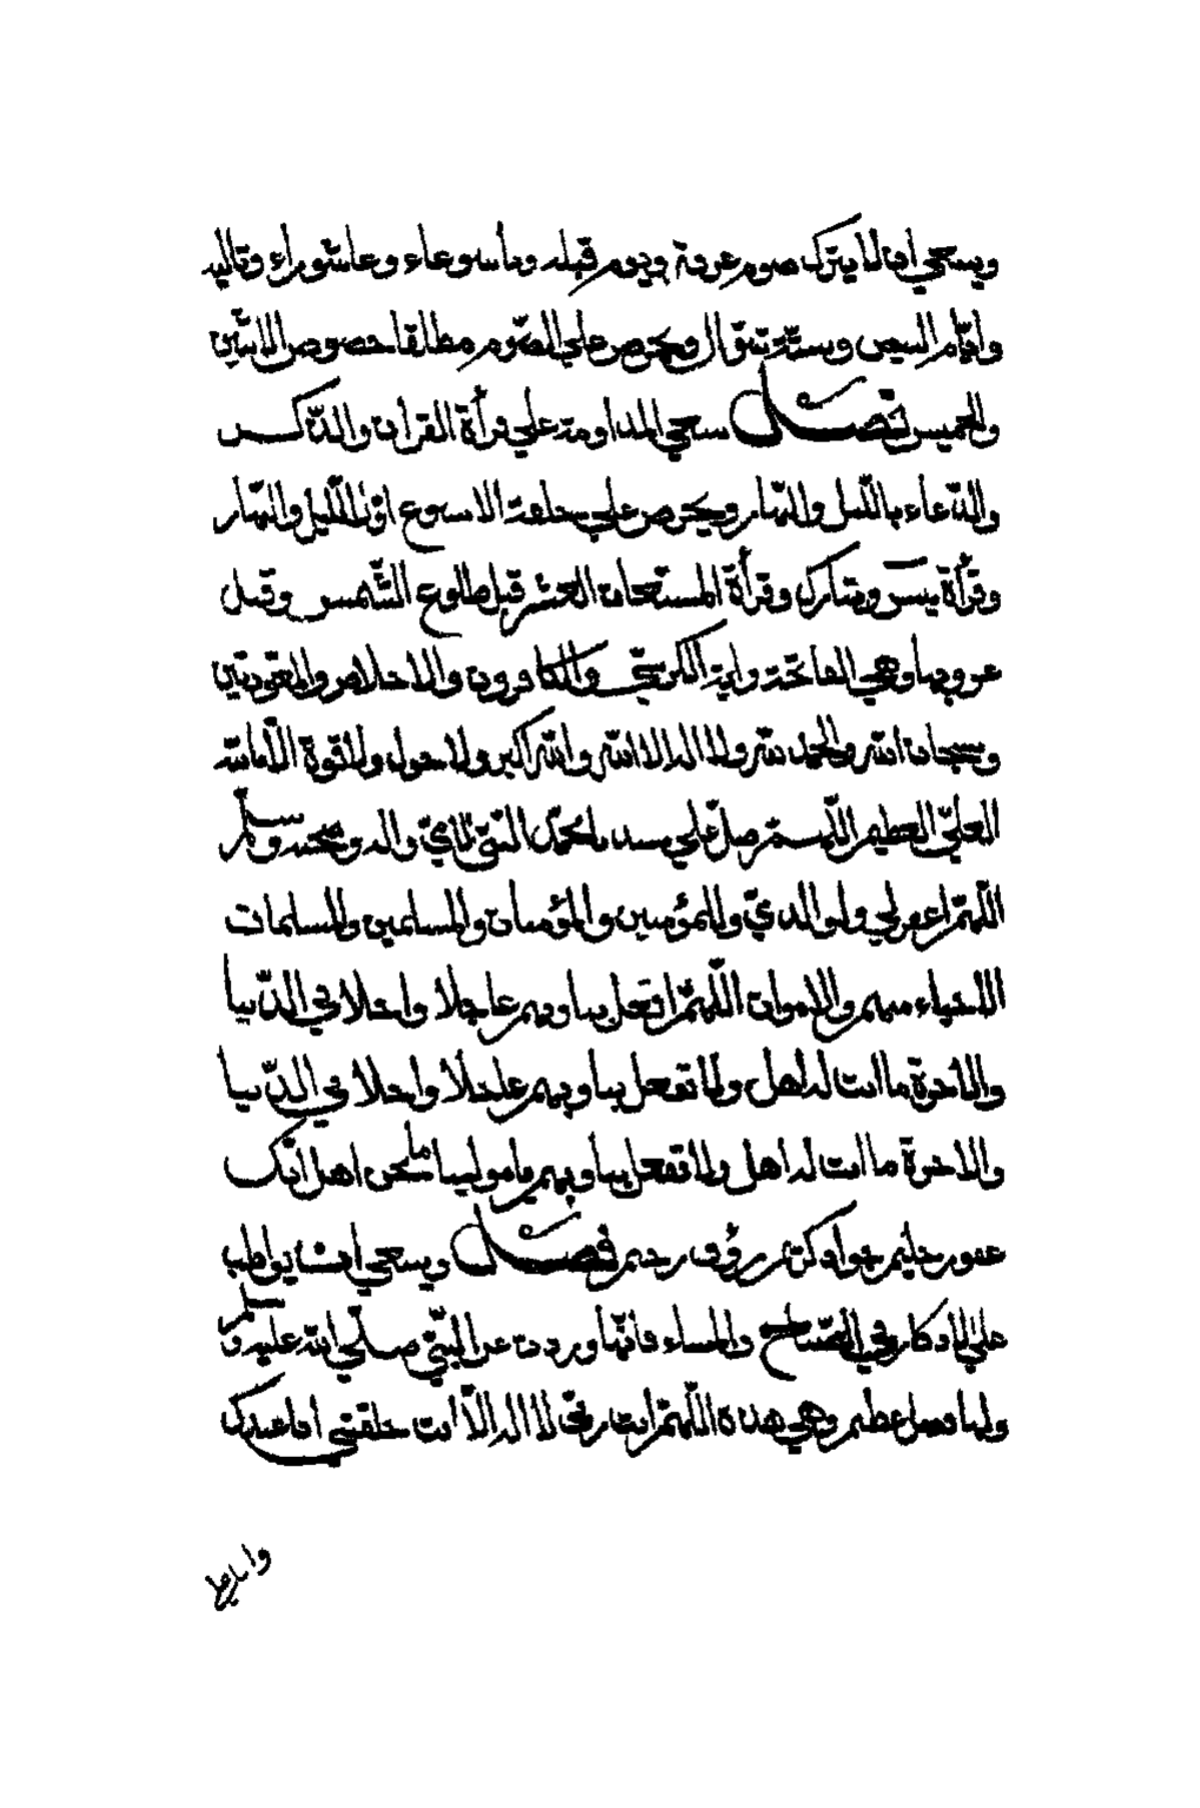 وينبغي ان لا يترك صوم عرفة ويوم قبله وتاسوعاء وعاشوراء وتاليه
وايام البيض وستة شوال ويحرص علي الصوم مطلقا خصوص الاثنين
والخميس فصل ينبغي المداومة علي قرأة القران والذكر
والدعاء بالليل والنهار ويحرص علي ختمة الاسبوع اول الليل والنهار
وقرأة يس وتبارك وقرأة المسبعات العشر قبل طلوع الشمس وقبل
غروبها وهي الفاتحة واية الكرسي والكافرون والاخلاص والمعوذتين
وسبحان الله والحمد لله ولا اله الا الله والله اكبر ولا حول ولا قوة الا بالله
العلي العظيم اللهم صل علي سيدنا محمد النبي الامي واله وصحبه وسلم
اللهم اغفر لي ولوالدي وللمؤمنين والمؤمنات والمسلمين والمسلمات
الاحياء منهم والاموات اللهم افعل بنا وبهم عاجلا واجلا في الدنيا
والاخرة ما انت له اهل ولا تفعل بنا وبهم عاجلا واجلا في الدنيا
والاخرة ما انت له اهل ولا تفعل بنا وبهم يا مولينا ما نحن اهل انك
غفور حليم جواد كريم رؤف رحيم فصل وينبغي ان يواظب
علي الاذكار في الصباح والمساء فانها وردت عن النبي صلي الله عليه وسلم
ولها فضل عظيم وهي هذه اللهم انت ربي لا اله الا انت خلقتني انا عبدك
وانا علي